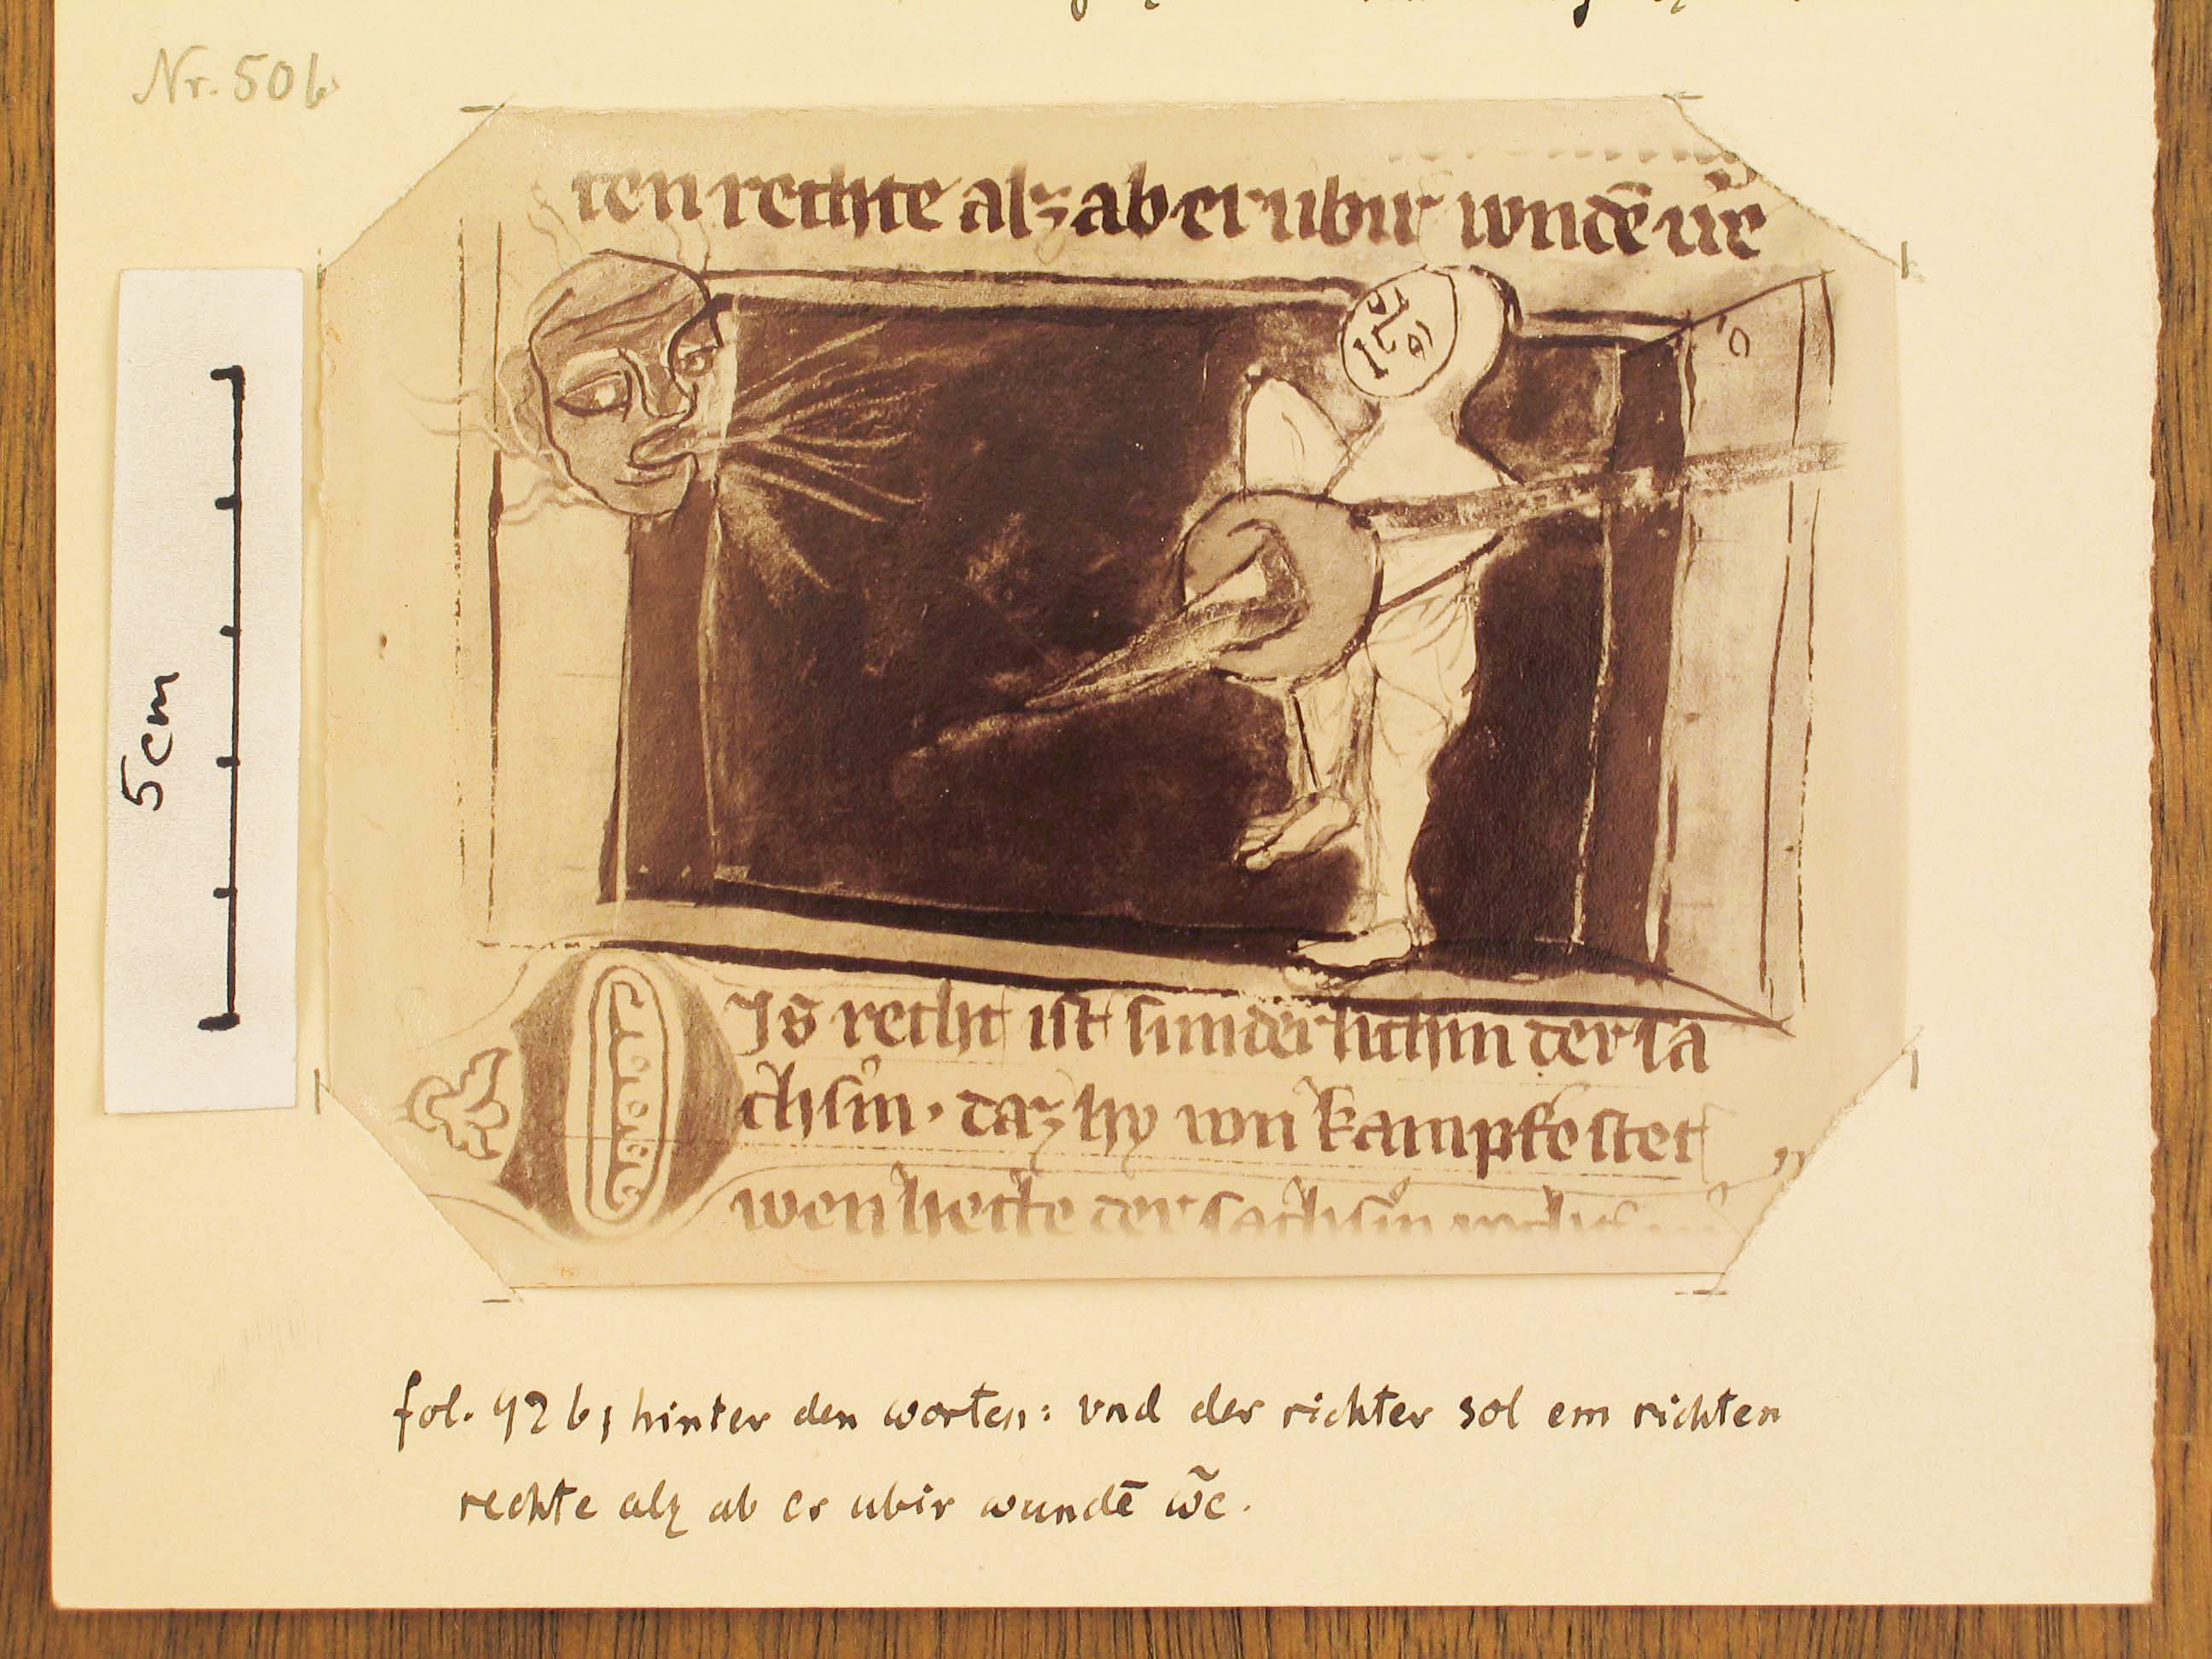 Nr. 50b
ten rechte alz ab er ubir wndē ẘe
5 cm
Dis recht ist sunderlichin der sa
chsin · daz hy wn kampfe stet
wen hette der sachsin
fol. 92 b, hinter den worten: vnd der richter sol em richten
rechte alz ab er ubir wundē w̃e.